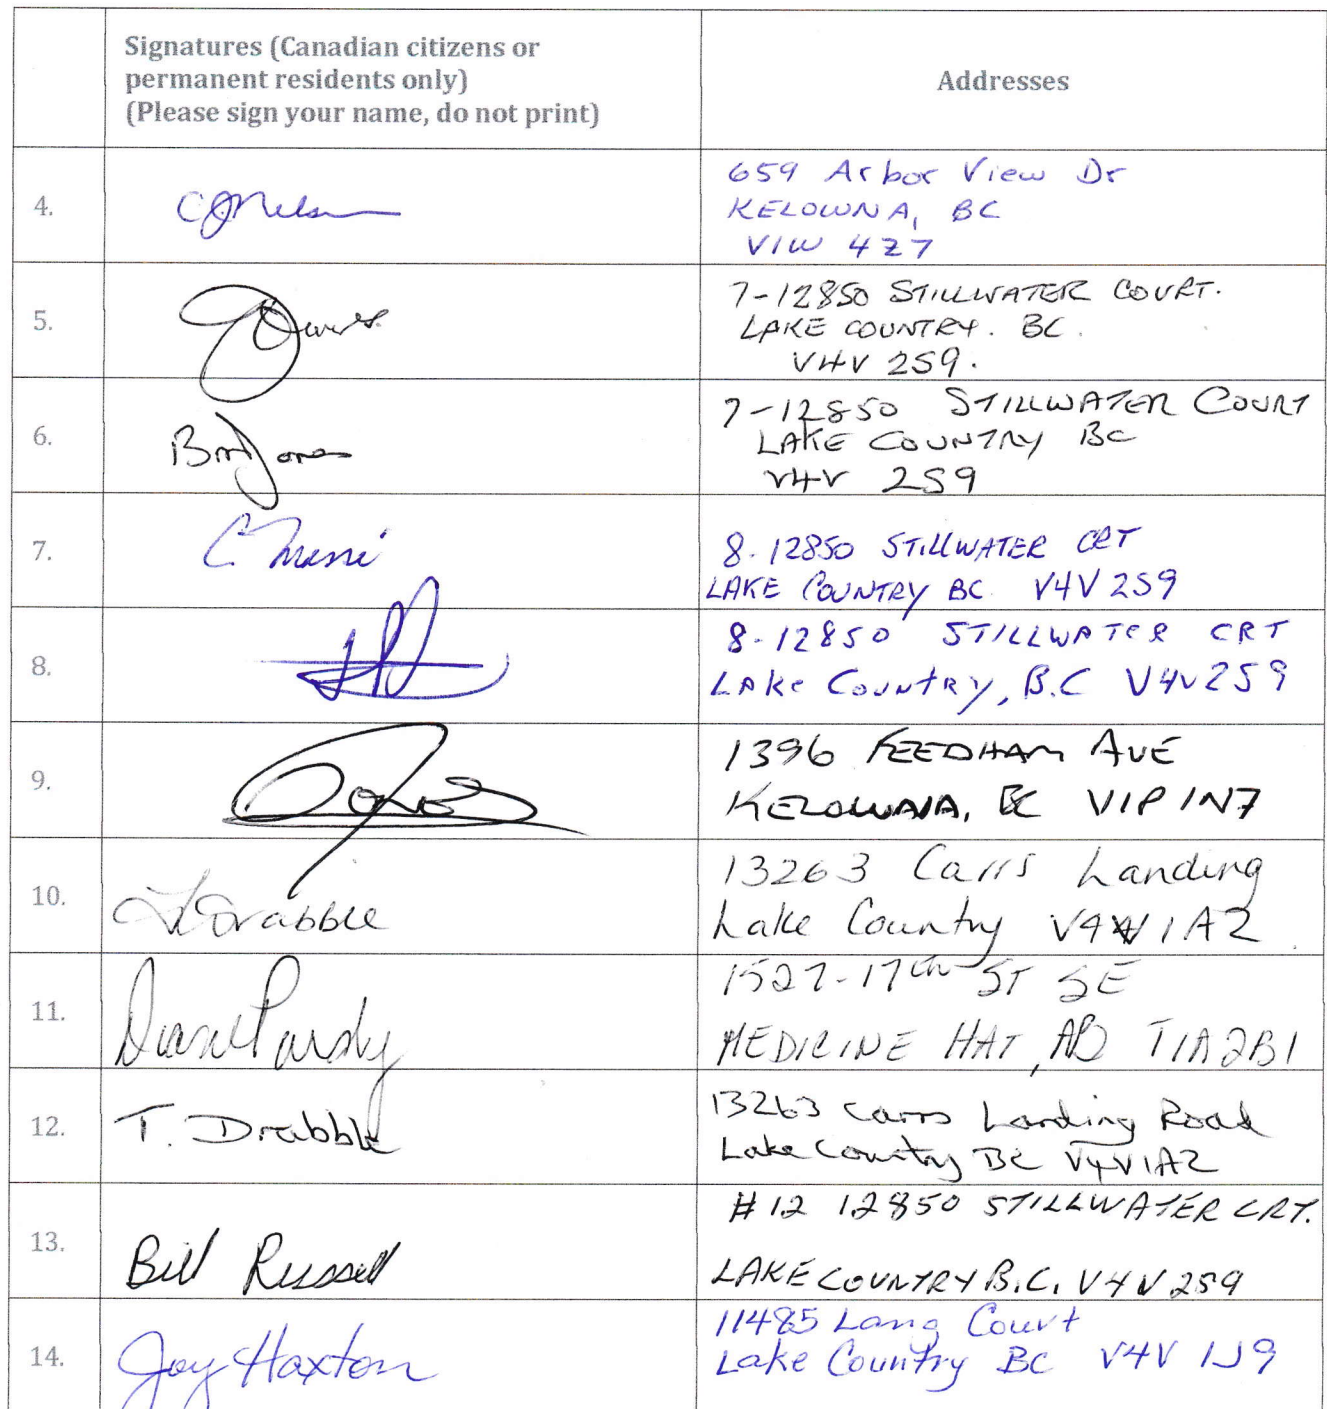 Signatures (Canadian citizens or
permanent residents only)
(Please sign your name, do not print)
Addresses
4.
659 Arbor View Dr
KELOWNA, BC
V1W 4Z7
5.
7-12850 STILLWATER COURT.
LAKE COUNTRY. BC.
V4V 2S9.
6.
Jones
7-12850 STILLWATER COURT
LAKE COUNTRY BC
V4V 2S9
7.
C.
8-12850 STILLWATER CRT
LAKE COUNTRY BC V4V 2S9
8.
8-12850 STILLWATER CRT
LAKE COUNTRY, B.C V4V2S9
9.
1396 AVE
KELOWNA, BC V1P 1N7
10.
Drabble
13263 Carrs Landing
Lake Country V4V 1A2
11.
Diane Pardy
1527-17th ST SE
MEDICINE HAT, AB T1A2B1
12.
T. Drabble
13263 Carrs Landing Road
Lake Country BC V4V1A2
13.
Bill Russell
#12 12850 STILLWATER CRT.
LAKE COUNTRY B.C. V4V 2S9
14.
Joy Haxton
11485 Lang Court
Lake Country BC V4V 1J9